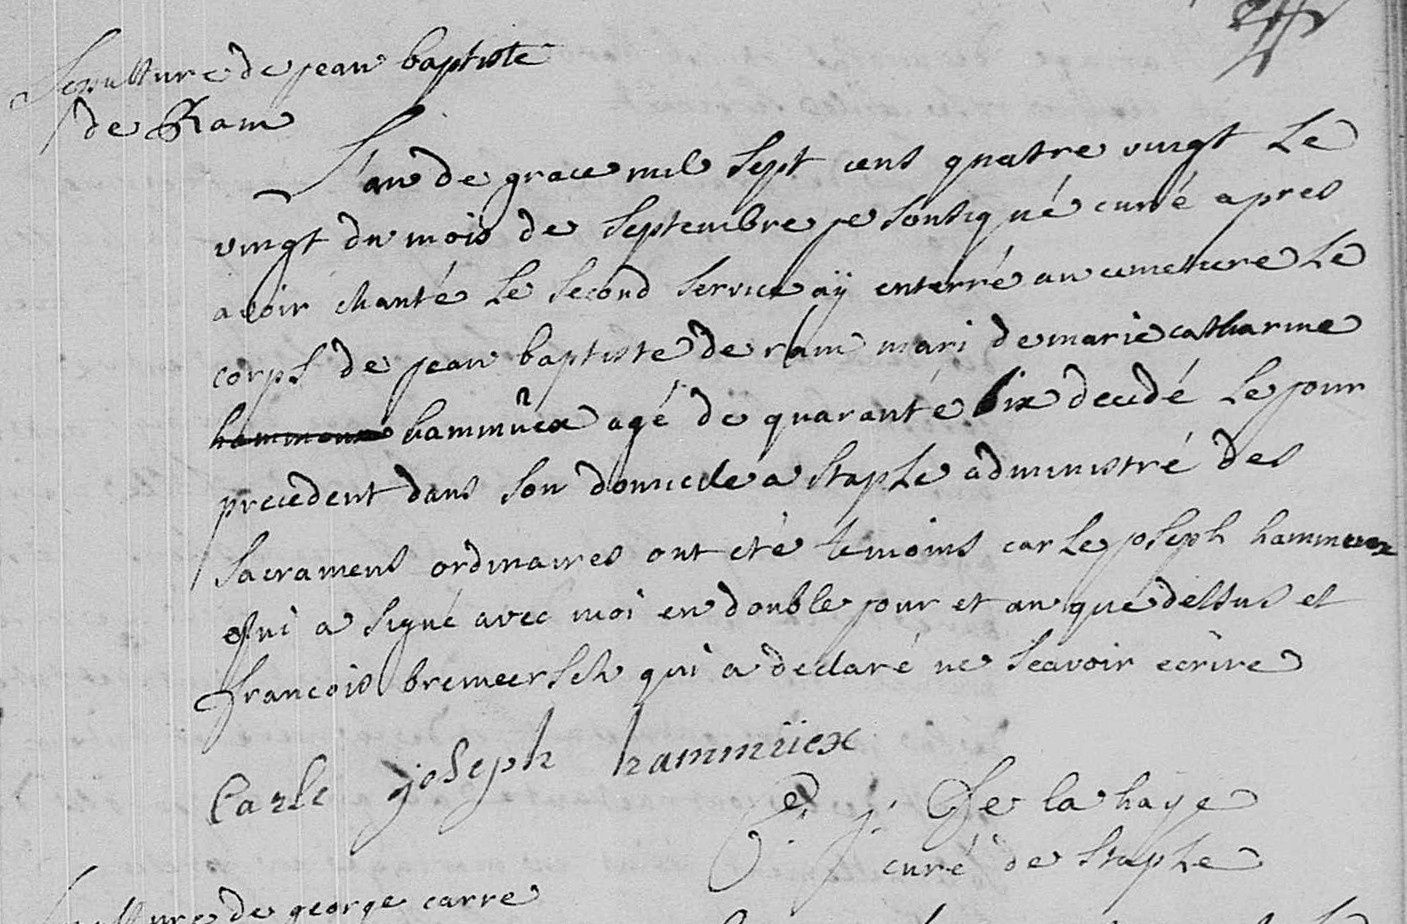 Sepulture de jean baptiste
de Ram
L'an de grace mil sept cens quatre vingt le
vingt du mois de septembre je soussigné curé apres
avoir chanté le second service aÿ enterré au cimetiere le
corps de jean baptiste de ram mari de marie catharine
hammeux hammüex agé de quaranté six decedé le jour
precedent dans son domicile a staple administré des
sacramens ordinaires ont eté temoins carle joseph hammeux
qui a signé avec moi en double jour et an que dessus et
francois bremeersch qui a declaré ne scavoir ecrire
Carle joseph hammüex
j. De la haye
curé de Staple
Sepulture de george carre